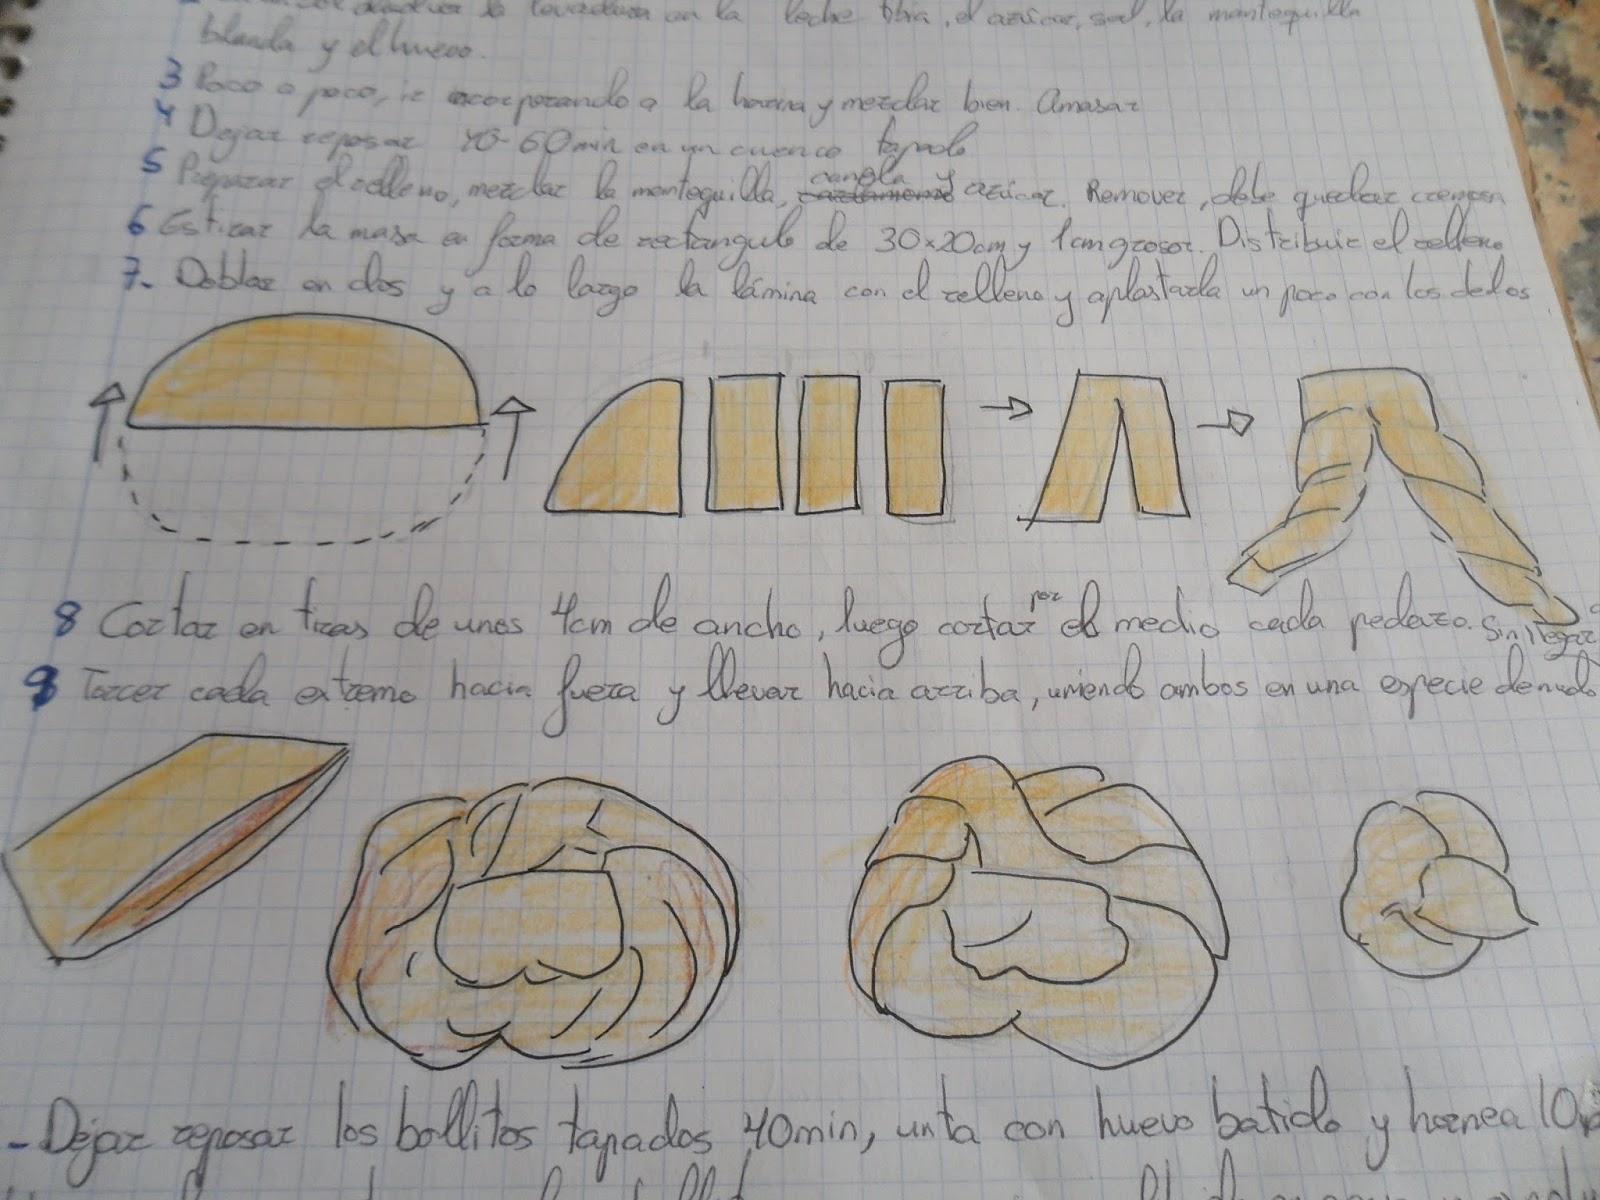 la levadura en la leche tibia, el azúcar, sal, la mantequilla
blanda y el huevo.
3 Poco a poco, ir incorporando a la harina y mezclar bien. Amasar
4 Dejar reposar 40-60min en un cuenco tapado
5 Preparar el relleno, mezclar la mantequilla, canela y azúcar. Remover, debe quedar cremosa
6 Estirar la masa en forma de rectangulo de 30x20cm y 1cm grosor. Distribuir el relleno
7. Doblar en dos y a lo largo la lámina con el relleno y aplastarla un poco con los dedos
8 Cortar en tiras de unos 4cm de ancho, luego cortar por el medio cada pedazo. Sin llegar
9 Torcer cada extremo hacia fuera y llevar hacia arriba, uniendo ambos en una especie de nudo
- Dejar reposar los bollitos tapados 40min, unta con huevo batido y hornea 10